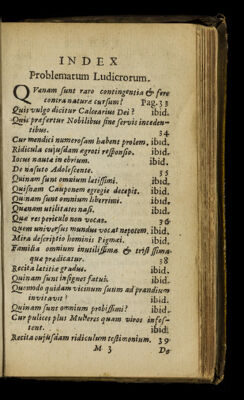 INDEX
Problematum Ludicrorum.
QVænam sunt raro contingentia & fere
contra naturæ cursum? Pag. 33
Quis vulgo dicitur Calcearius Dei? ibid.
Quis præfertur Nobilibus sine servis inceden-
tibus. 34
Cur mendici numerosam habent prolem, ibid.
Ridicula cujusdam ægroti responsio. ibid.
Iocus nautæ in ebrium. ibid.
De nasuto Adolescente. 35
Quinam sunt omnium latissimi. ibid.
Quisnam Cauponem egregie decepit. ibid.
Quinam sunt omnium liberrimi. ibid.
Quænam utilitates nasi. ibid.
Quæ res periculo non vocat. 36
Quem universus mundus vocat nepotem. ibid.
Mira descriptio hominis Pigmæi. ibid.
Familia omnium inutilissima & tristissima
quæ prædicatur. 38
Recita latitiæ gradus. ibid.
Quinam sunt insignes fatui. ibid.
Quomodo quidam vicinum suum ad prandium
invitavit? ibid.
Quinam sunt omnium probissimi? ibid.
Cur pulices plus Mulieres quam viros infes-
tent. ibid.
Recita cujusdam ridiculum testimonium. 39
M 3 De